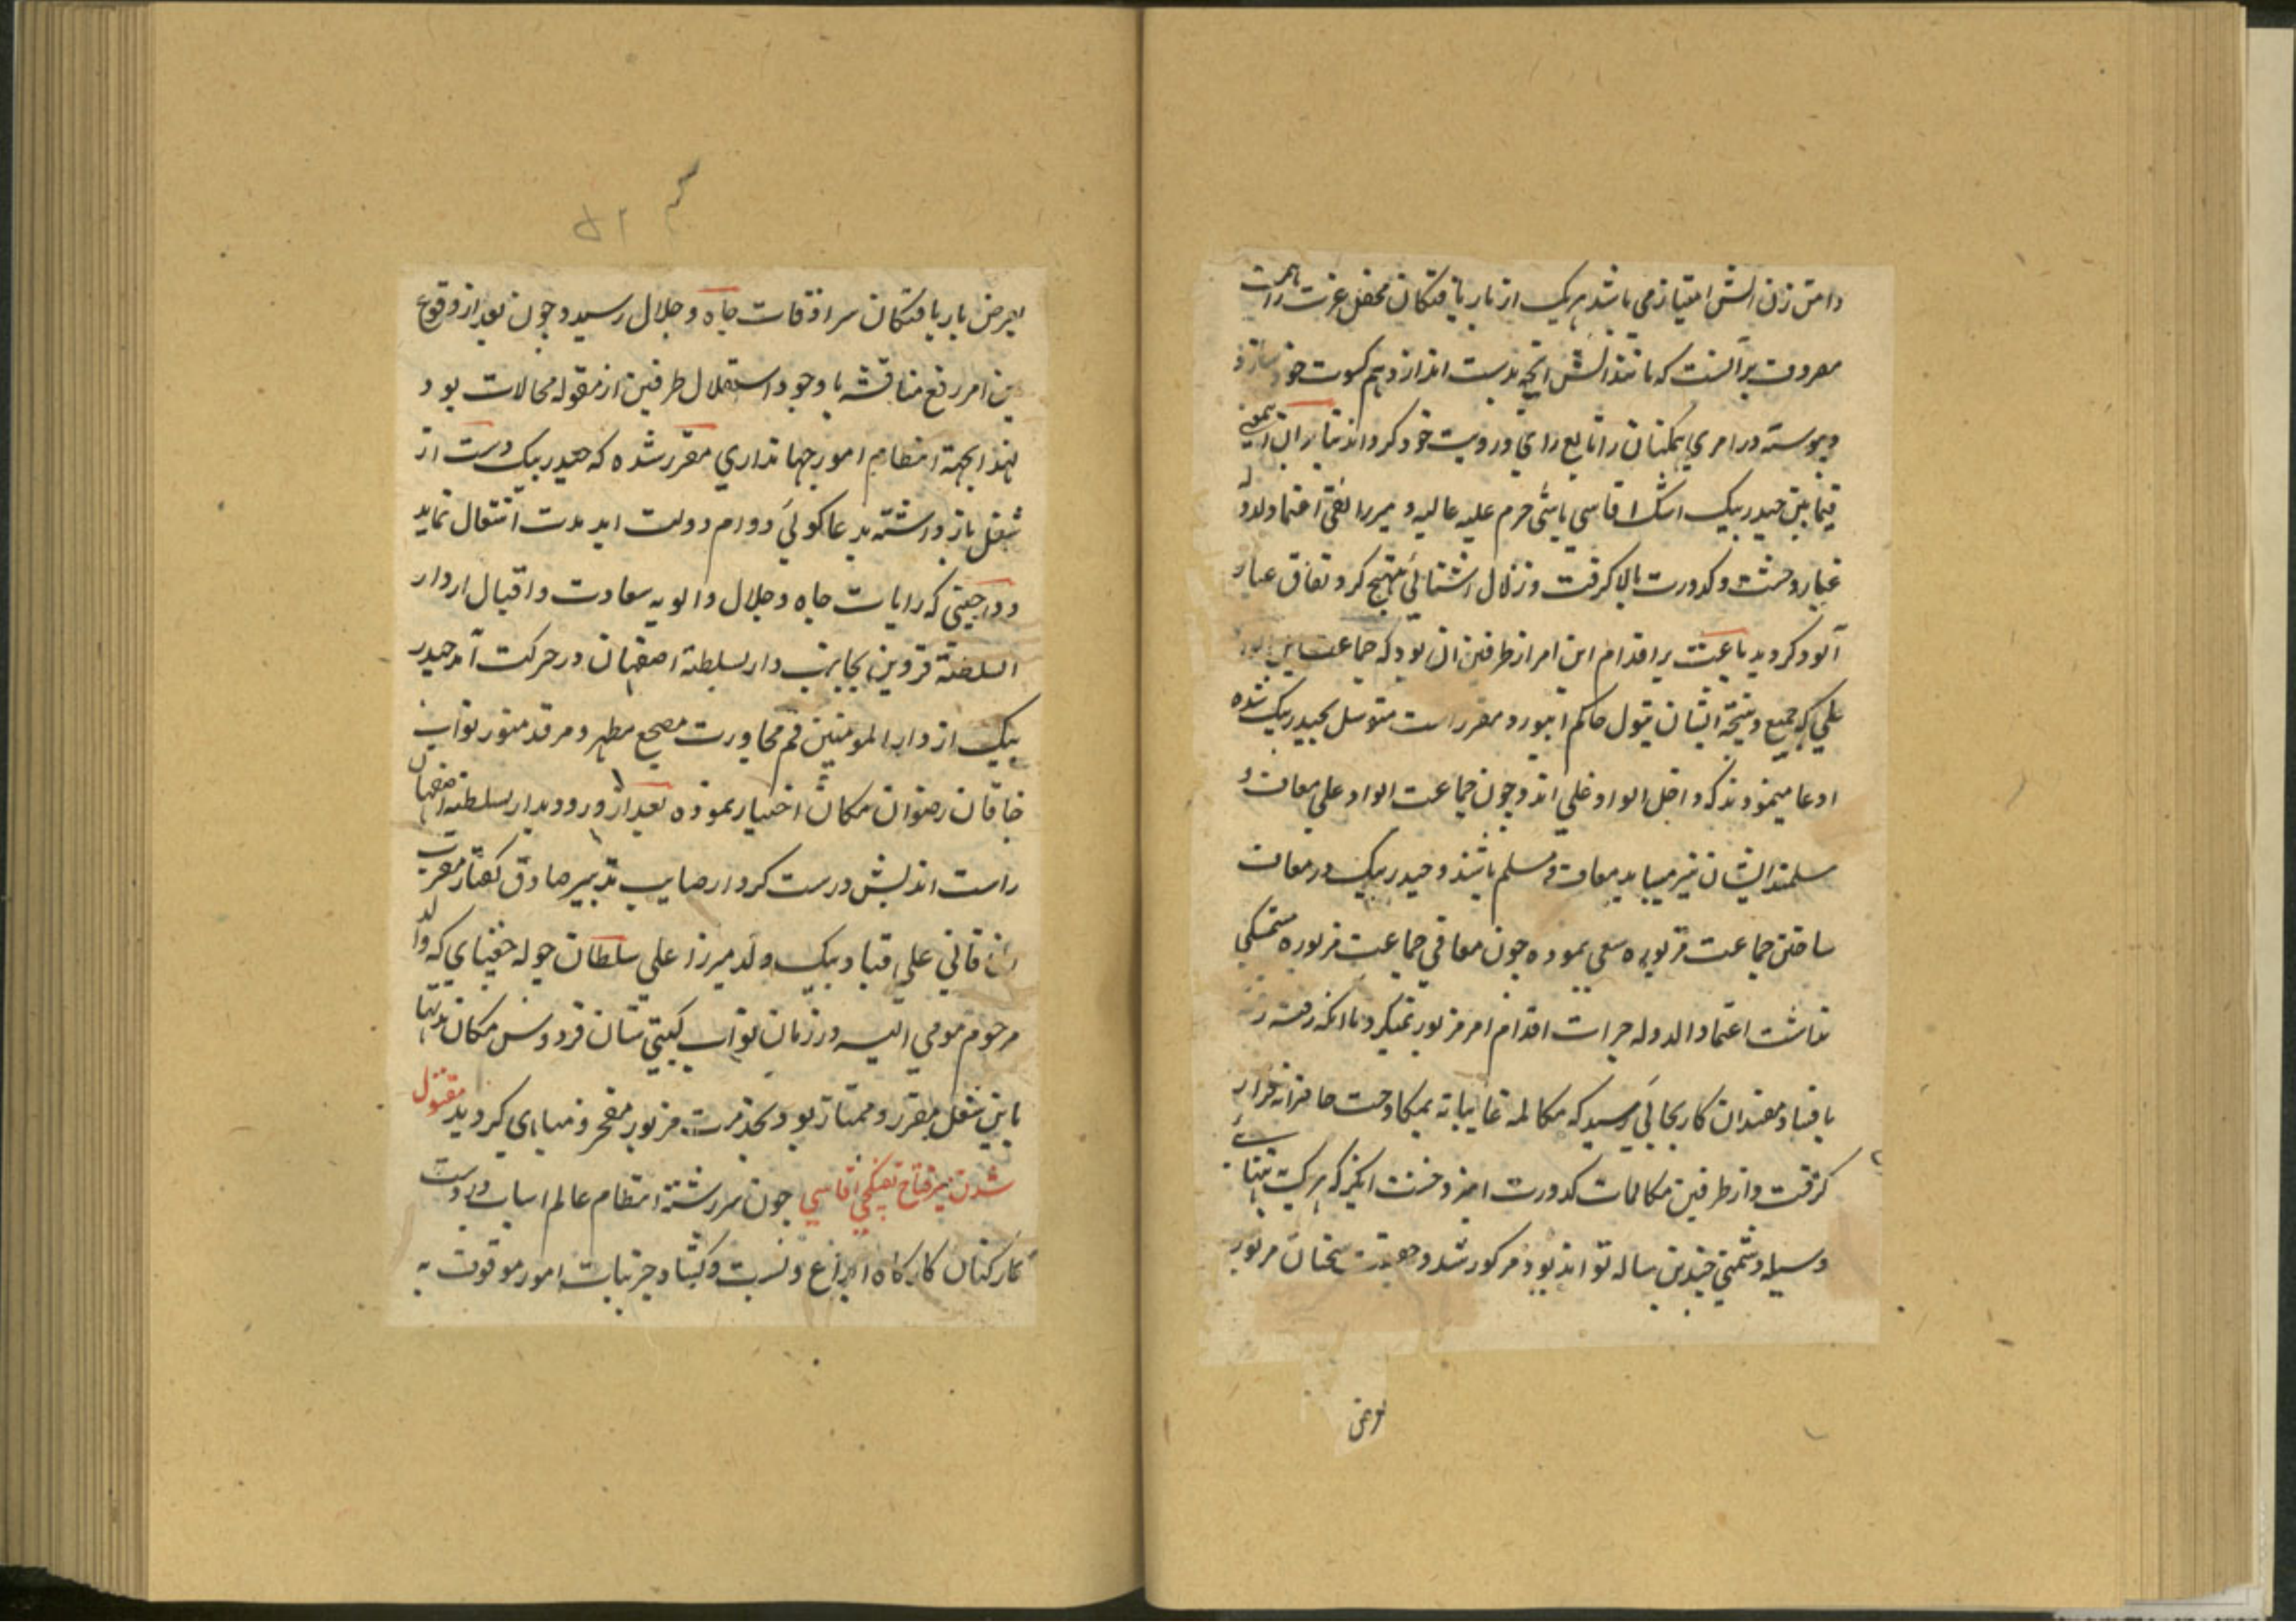 دامن زن آتش امتیاز می باشد هریک از باریافتکان محفل عزت را همت
مصروف بر آنست که مانند آتش آنچه بدست اندازد هم کسوت خود سازد و
پیوسته در امری همکنان را تابع رای و رویت خود کرداند بنابران
فیمابین حیدر بیک ایشک اقاسی باشی حرم علیه عالیه و میرزا تقی اعتماد الدوله
غبار وحشت و کدورت بالا کرفت و زلال اشنائی کرد نفاق غبار
آلود کردید باعث بر اقدام این امر از طرفین آن بود که جماعت
علی که جمیع و بنیچه ایشان بتیول حاکم ابیورد مقرر است متوسل بحیدر بیک شده
ادعا مینمودند که داخل الواد علی اند و چون جماعت الواد علی معاف و
مسلمند ایشان نیز میباید معاف و مسلم باشند و حیدر بیک در معاف
ساختن جماعت مزبوره سعی نموده چون معافی جماعت مزبوره متمسکی
نداشت اعتماد الدوله جرات اقدام امر مزبور نمیکرد تا انکه رفته رفته
بافساد مفسدان کار بجائی رسید که مکالمه غایبانه بمکاوحت حاضرانه قرار
کرفت و از طرفین مکالمات کدورت امیز وحشت انکیز که هریک بتنهائی
وسیله دشمنی چندین ساله تواند بود مذکور شد و حقیقت سخنان مزبور
بعرض
بعرض باریافتکان سرادقات جاه و جلال رسید و چون بعد از وقوع
این امر رفع مناقشه با وجود استقلال طرفین از مقوله محالات بود
لهذا بجهة انتظام امور جهانداری مقرر شده که حیدر بیک دست از
شغل باز داشته بدعا کوئی دوام دولت ابد مدت اشتغال نماید
و در حینی که رایات جاه و جلال و الویه سعادت و اقبال از دار
السلطنة قزوین بجانب دار السلطنة اصفهان در حرکت آمد حیدر
بیک از دار المومنین قم مجاورت مضجع مطهر و مرقد منور نواب
خاقان رضوان مکان اختیار نموده بعد از ورود بدار السلطنة اصفهان
راست اندیش درست کردار صایب تدبیر صادق کفتار مقرب
الخاقانی علی قباد بیک ولد میرزا علی سلطان جوله جغتیای که والد
مرحوم مومی الیه در زمان نواب کیتی ستان فردوس مکان مدتها
باین شغل مقرر و ممتاز بود بخدمت مزبور مفتخر و مباهی کردید مقتول
شدن میر فتاح تفنکچی اقاسی چون سررشتة انتظام عالم اسباب در دست
کارکنان کارکاه ابداع و بست و کشاد جزئیات امور موقوف به